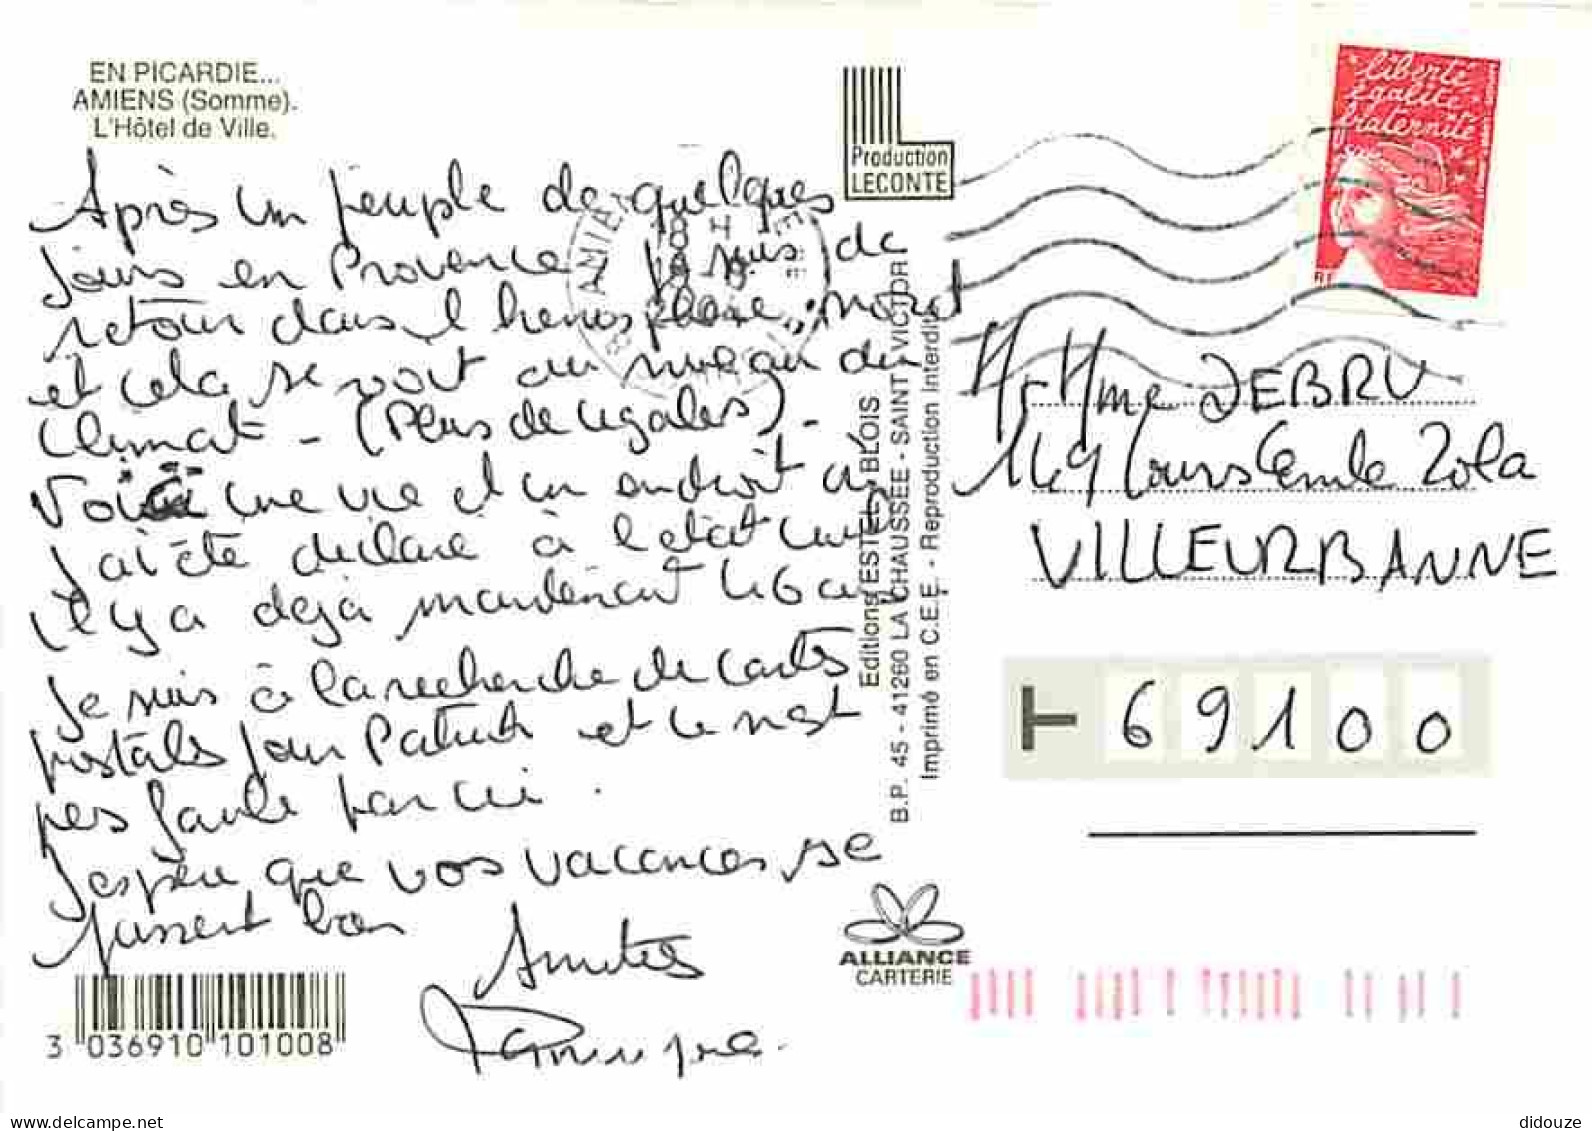 EN PICARDIE...
AMIENS (Somme).
L'Hôtel de Ville.
Après un peuple de quelques
jours en Provence, je suis de
retour dans l'hemisphère nord
et cela se voit au niveau du
climat - (Pluies de cigales) -
Voici une vue d'un endroit où
j'ai été déclaré à l'état civil
il y a déjà maintenant 46 ans
Je suis à la recherche de cartes
postales pour Patrick et ce n'est
pas facile par ici.
J'espère que vos vacances se
passent bien
Amitiés
Production
LECONTE
Editions ESTEL BLOIS
B.P. 45 - 41260 LA CHAUSSÉE - SAINT VICTOR
Imprimé en C.E.E. - Reproduction Interdite
ALLIANCE
CARTERIE
3 036910 101008
liberté
égalité
fraternité
RF
AMIENS
Mr Mme DEBRU
149 Cours Emile Zola
VILLEURBANNE
69100
delcampe.net
didouze